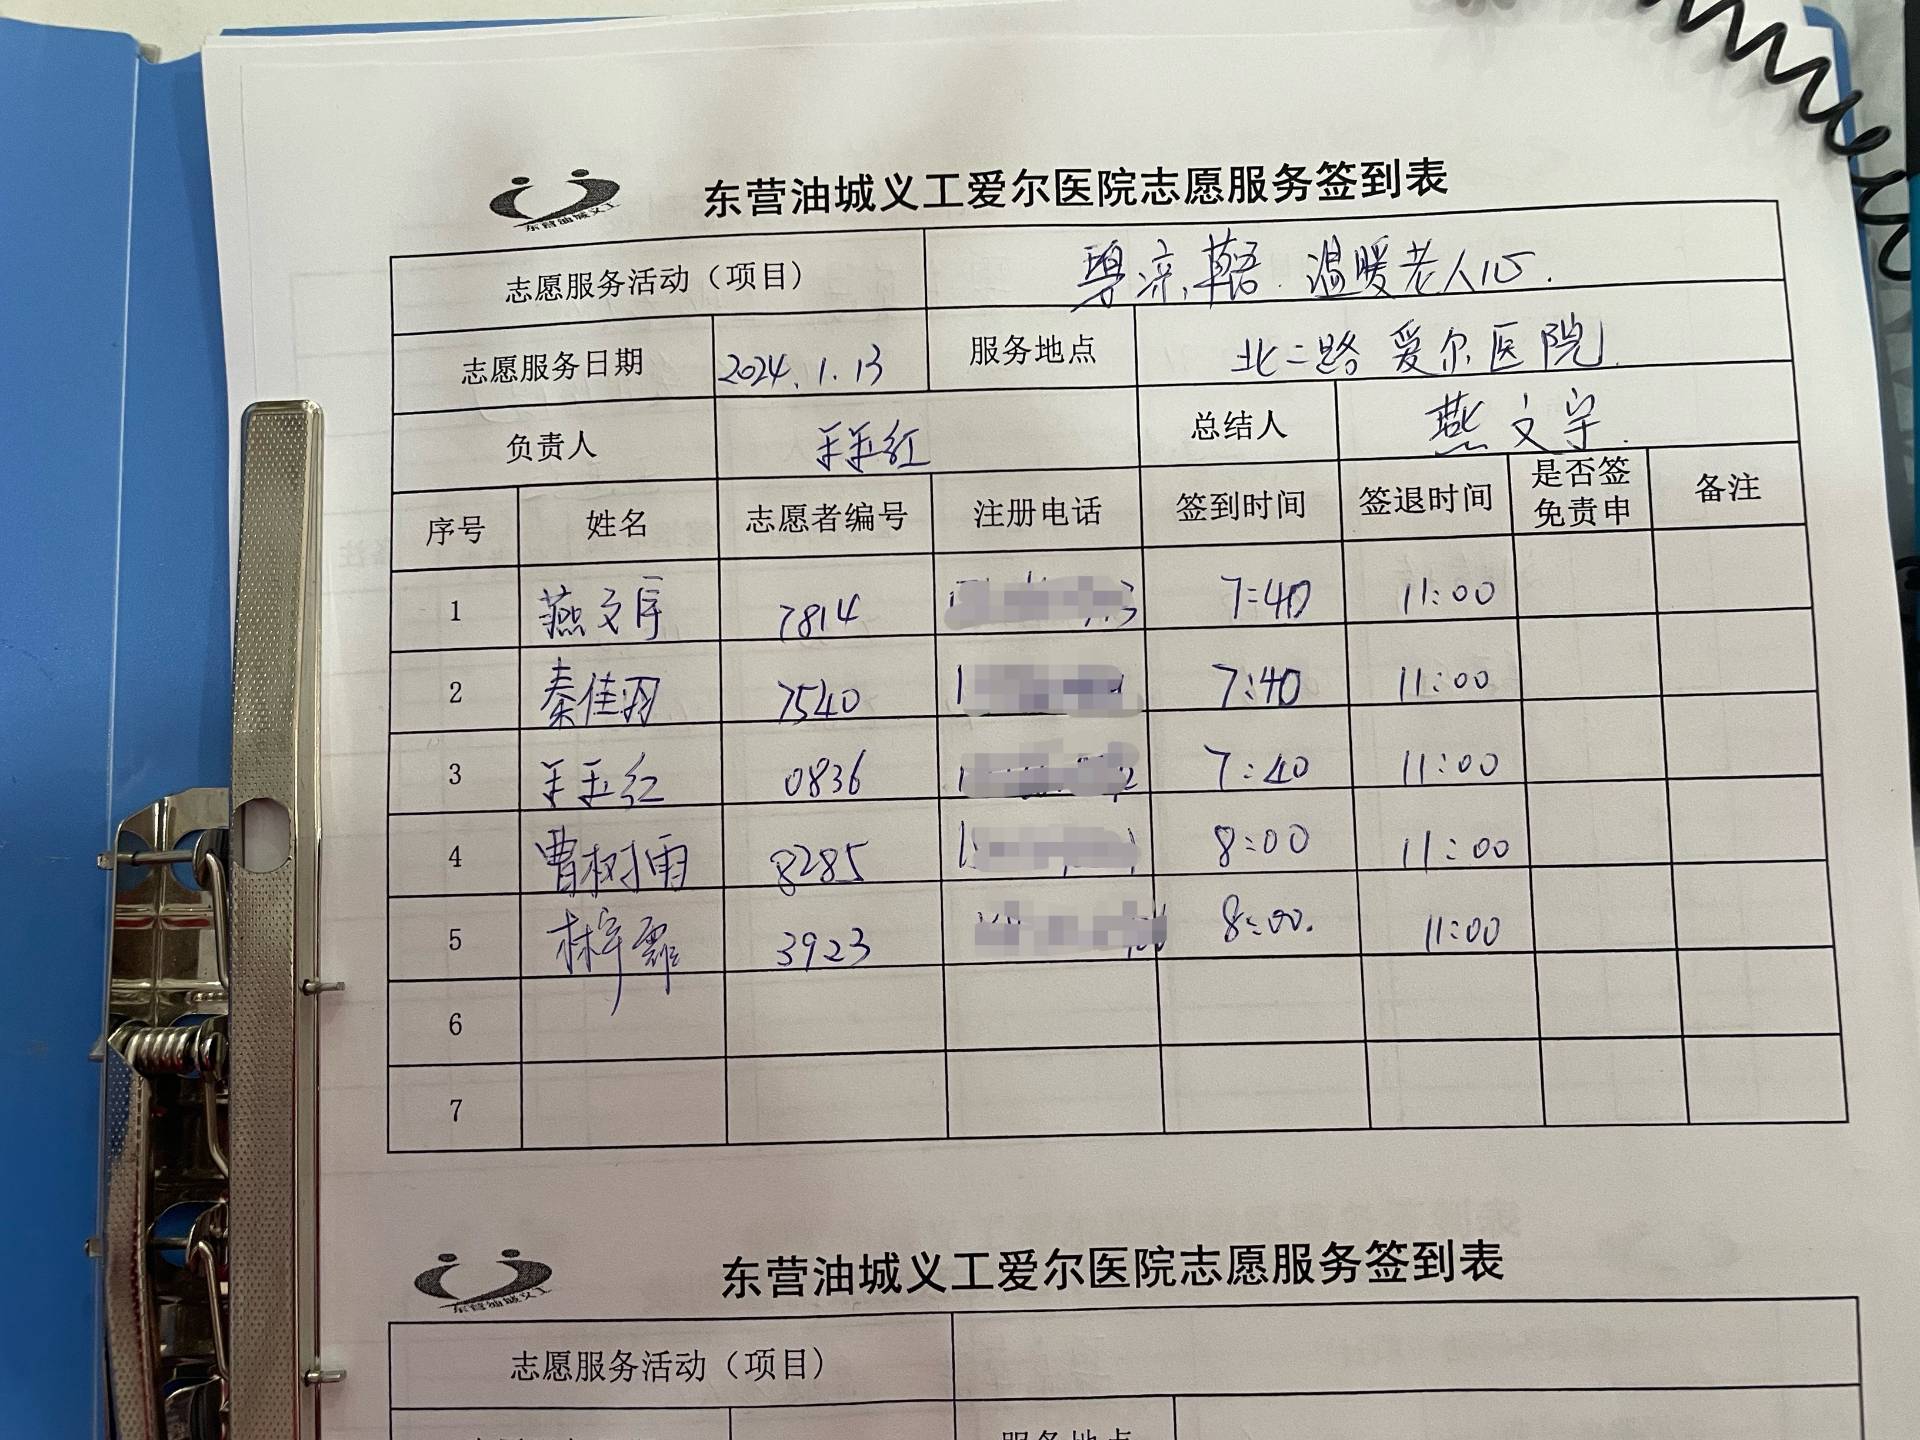 东营油城义工
东营油城义工爱尔医院志愿服务签到表
志愿服务活动（项目） 温暖老人心.
志愿服务日期 2024.1.13 服务地点 北二路 爱尔医院
负责人 王玉红 总结人 燕文宇.
序号 姓名 志愿者编号 注册电话 签到时间 签退时间 是否签免责申 备注
1 燕文宇 7814 7:40 11:00
2 秦佳羽 7540 7:40 11:00
3 王玉红 0836 7:40 11:00
4 曹树雨 8285 8:00 11:00
5 林宇霏 3923 8:00. 11:00
6
7
东营油城义工
东营油城义工爱尔医院志愿服务签到表
志愿服务活动（项目）
服务地点